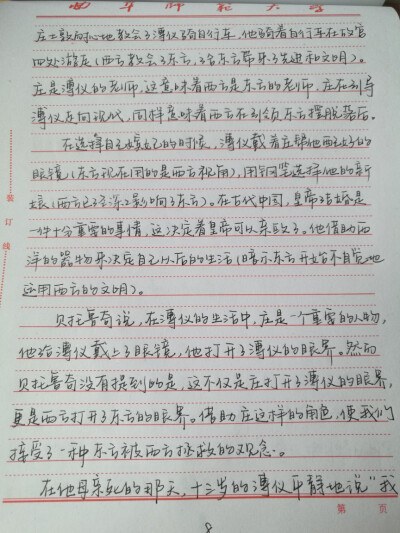 西华师范大学
庄士敦耐心地教会了溥仪骑自行车，他骑着自行车在故宫
四处游走（西方教会了东方，给东方带来了先进和文明）。
庄是溥仪的老师，这意味着西方是东方的老师，庄在引导
溥仪走向现代，同样意味着西方在引领东方摆脱落后。
在选择自己嫔妃的时候，溥仪戴着庄帮他配好的
眼镜（东方现在用的是西方视角），用钢笔选择他的新
娘（西方已经深深影响了东方）。在古代中国，皇帝结婚是
一件十分重要的事情，这决定着皇帝可以亲政了。他借助西
洋的器物来决定自己以后的生活（暗示东方开始不自觉地
运用西方的文明）。
贝托鲁奇说，在溥仪的生活中，庄是一个重要的人物，
他给溥仪戴上了眼镜，他打开了溥仪的眼界。然而
贝托鲁奇没有提到的是，这不仅是庄打开了溥仪的眼界，
更是西方打开了东方的眼界。借助庄这样的角色，使我们
接受了一种东方被西方拯救的观念。
在他母亲死的那天，十三岁的溥仪平静地说“我
装订线
第 页
8